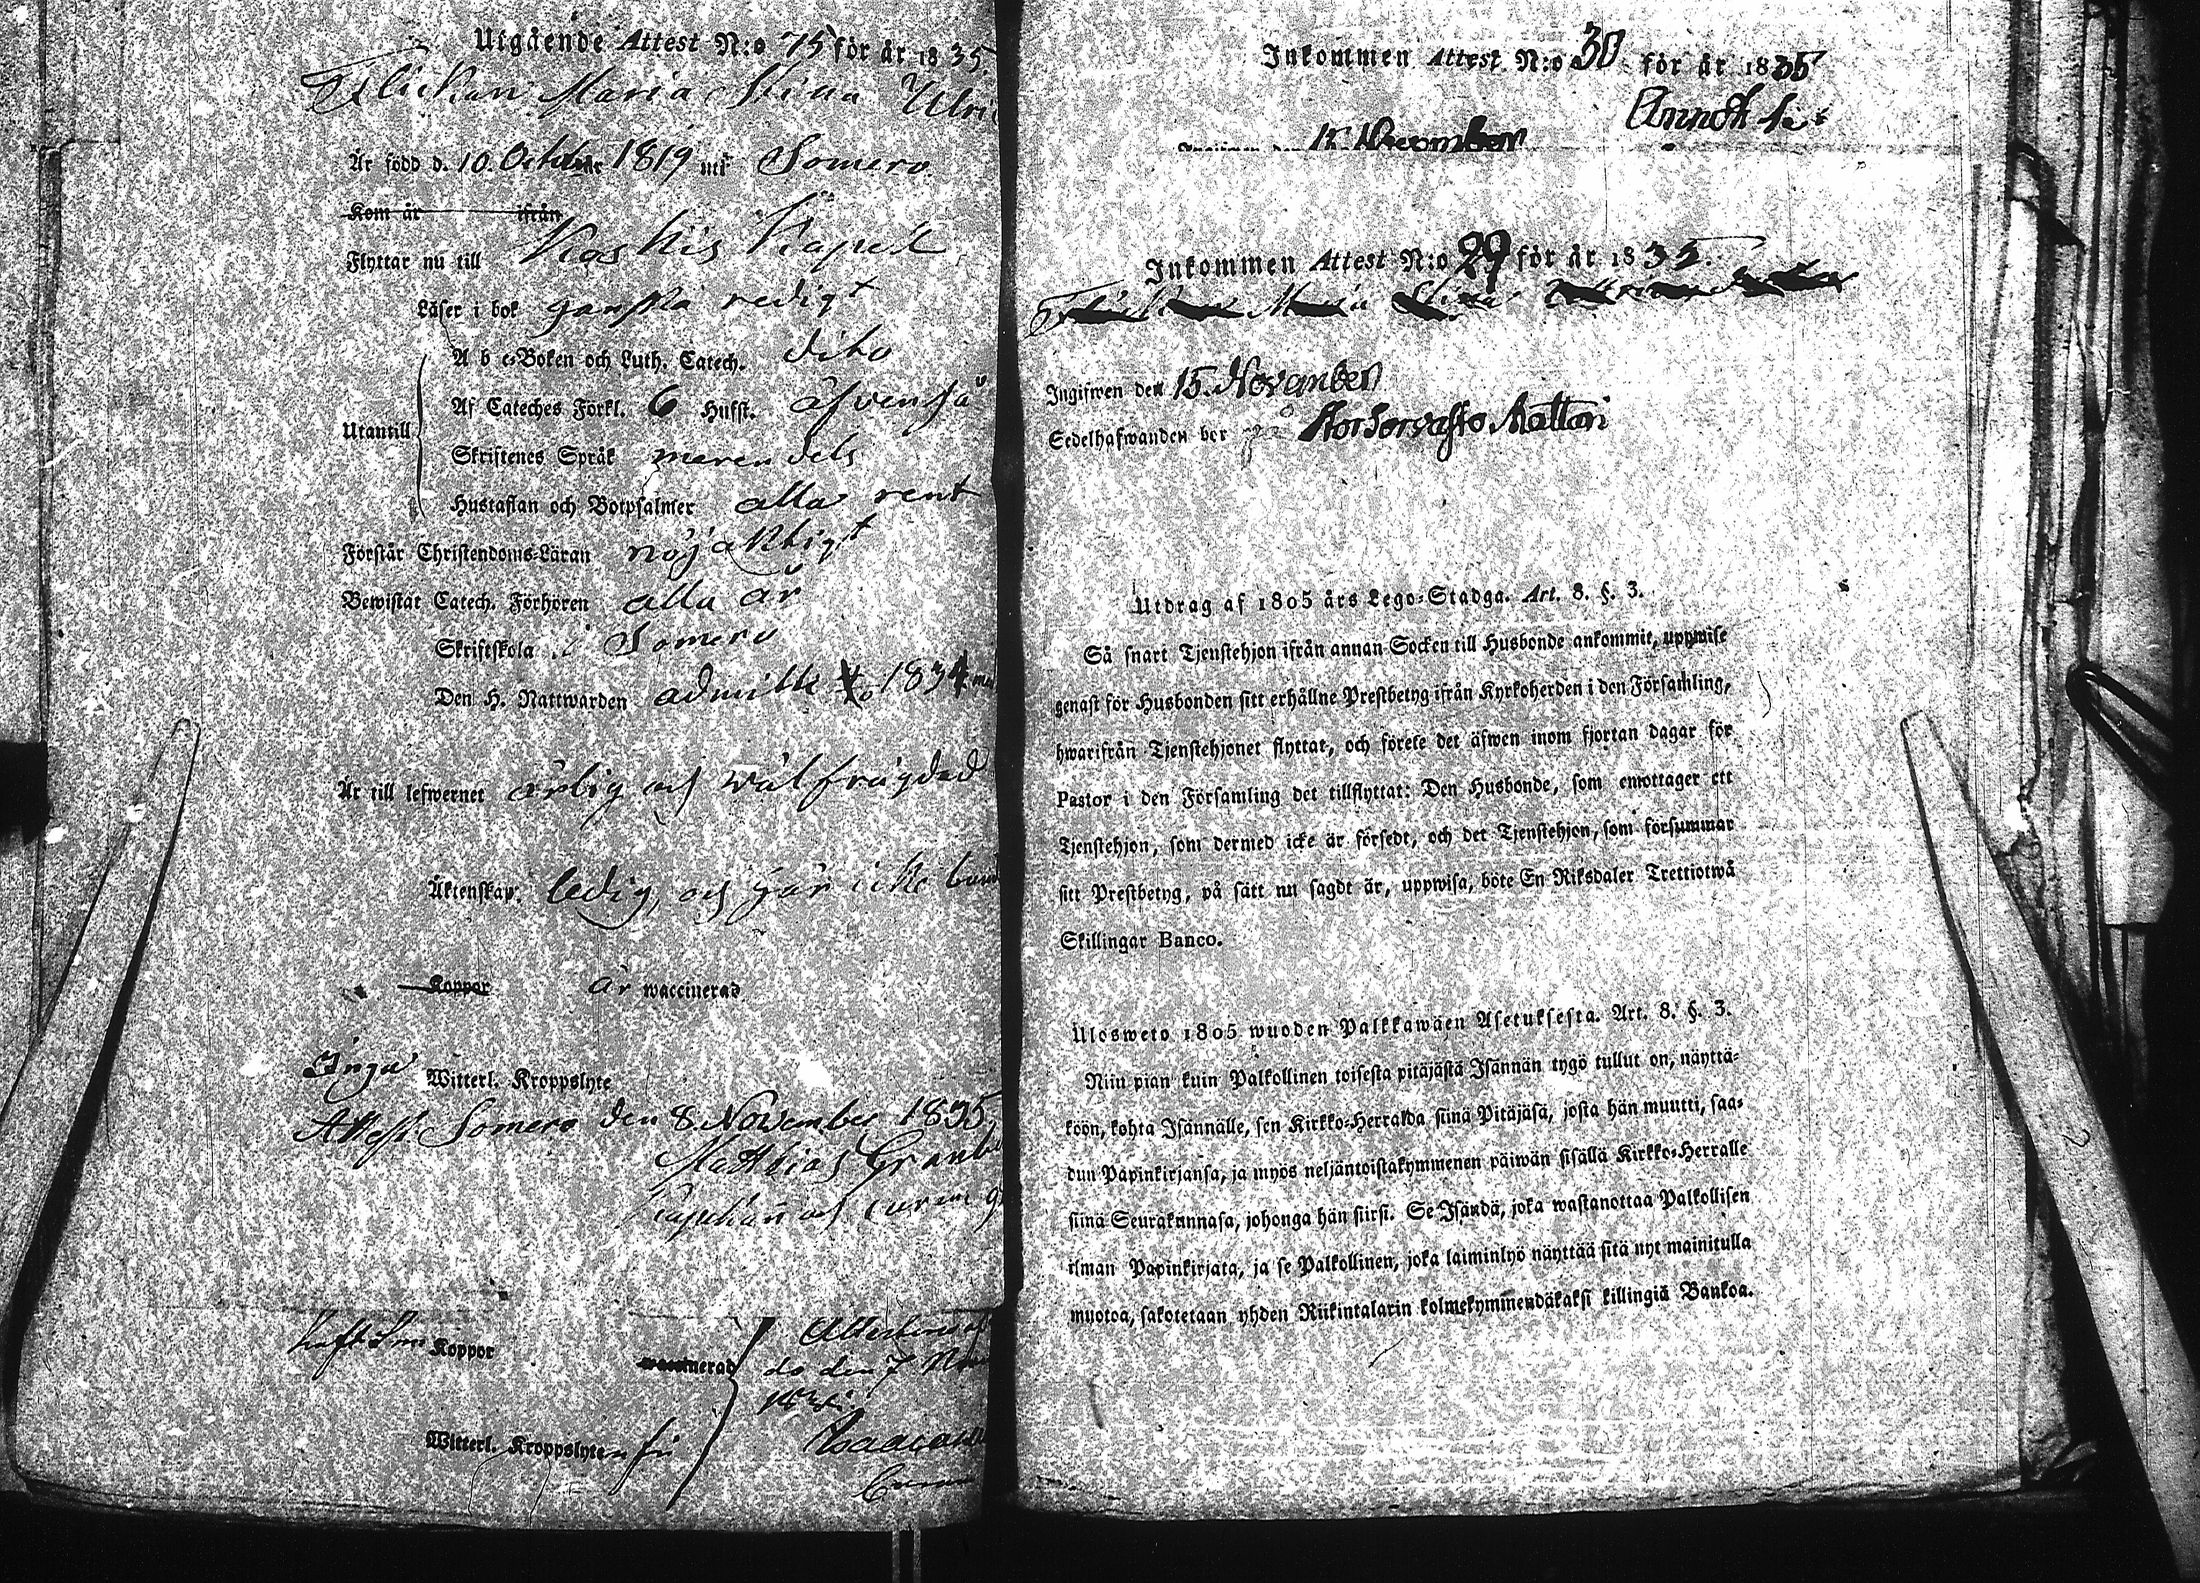 Utgående Attest N:o 75 för år 1835.
Flickan Maria Stina Ulri
Är född d. 10. October 1819 uti Somero
Kom år ifrån
Flyttar nu till Koskis Kapell
Läser i bok ganska redigt
Utantill
A b c-Boken och Luth. Catech. dito
Af Cateches Förkl. 6 Hufst. äfvenså
Skriftenes Språk merendels
Hustaflan och Botpsalmer alla rent
Förstår Christendoms-Läran nöjaktigt
Bewistat Catech. Förhören alla år
Skriftskola i Somero
Den H. Nattwarden admitt 1834
Är till lefwernet ärlig och wälfrägdad
Äktenskap: ledig, och här icke
Koppor är waccinerad
Inga Witterl. Kroppslyte
Attest. Somero den 8 November 1835
Matthias
Kapellan och
Haft Koppor waccinerad
den 7
Witterl. Kroppslyten
Inkommen Attest N:o 30 för år 1835
15 November
Inkommen Attest N:o 29 för år 1835.
Flickan Maria Stina
Ingifwen den 15. November
Sedelhafwanden bor på Mattari
Utdrag af 1805 års Lego-Stadga. Art. 8. §. 3.
Så snart Tjenstehjon ifrån annan Socken till Husbonde ankommit, uppwise
genast för Husbonden sitt erhållne Prestbetyg ifrån Kyrkoherden i den Församling,
hwarifrån Tjenstehjonet flyttat, och förete det äfwen inom fjortan dagar för
Pastor i den Församling det tillflyttat: Den Husbonde, som emottager ett
Tjenstehjon, som dermed icke är försedt, och det Tjenstehjon, som försummar
sitt Prestbetyg, på sätt nu sagdt är, uppwisa, böte En Riksdaler Trettiotwå
Skillingar Banco.
Ulosweto 1805 wuoden Palkkawäen Asetuksesta. Art. 8. §. 3.
Niin pian kuin Palkollinen toisesta pitäjästä Isännän tygö tullut on, näyttä-
köön, kohta Isännälle, sen Kirkko-Herralda siinä Pitäjäsä, josta hän muutti, saa-
dun Papinkirjansa, ja myös neljäntoistakymmenen päiwän sisällä Kirkko-Herralle
siinä Seurakunnasa, johonga hän siirsi. Se Isändä, joka wastanottaa Palkollisen
ilman Papinkirjata, ja se Palkollinen, joka laiminlyö näyttää sitä nyt mainitulla
muotoa, sakotetaan yhden Riikintalarin kolmekymmendäkaksi killingiä Bankoa.